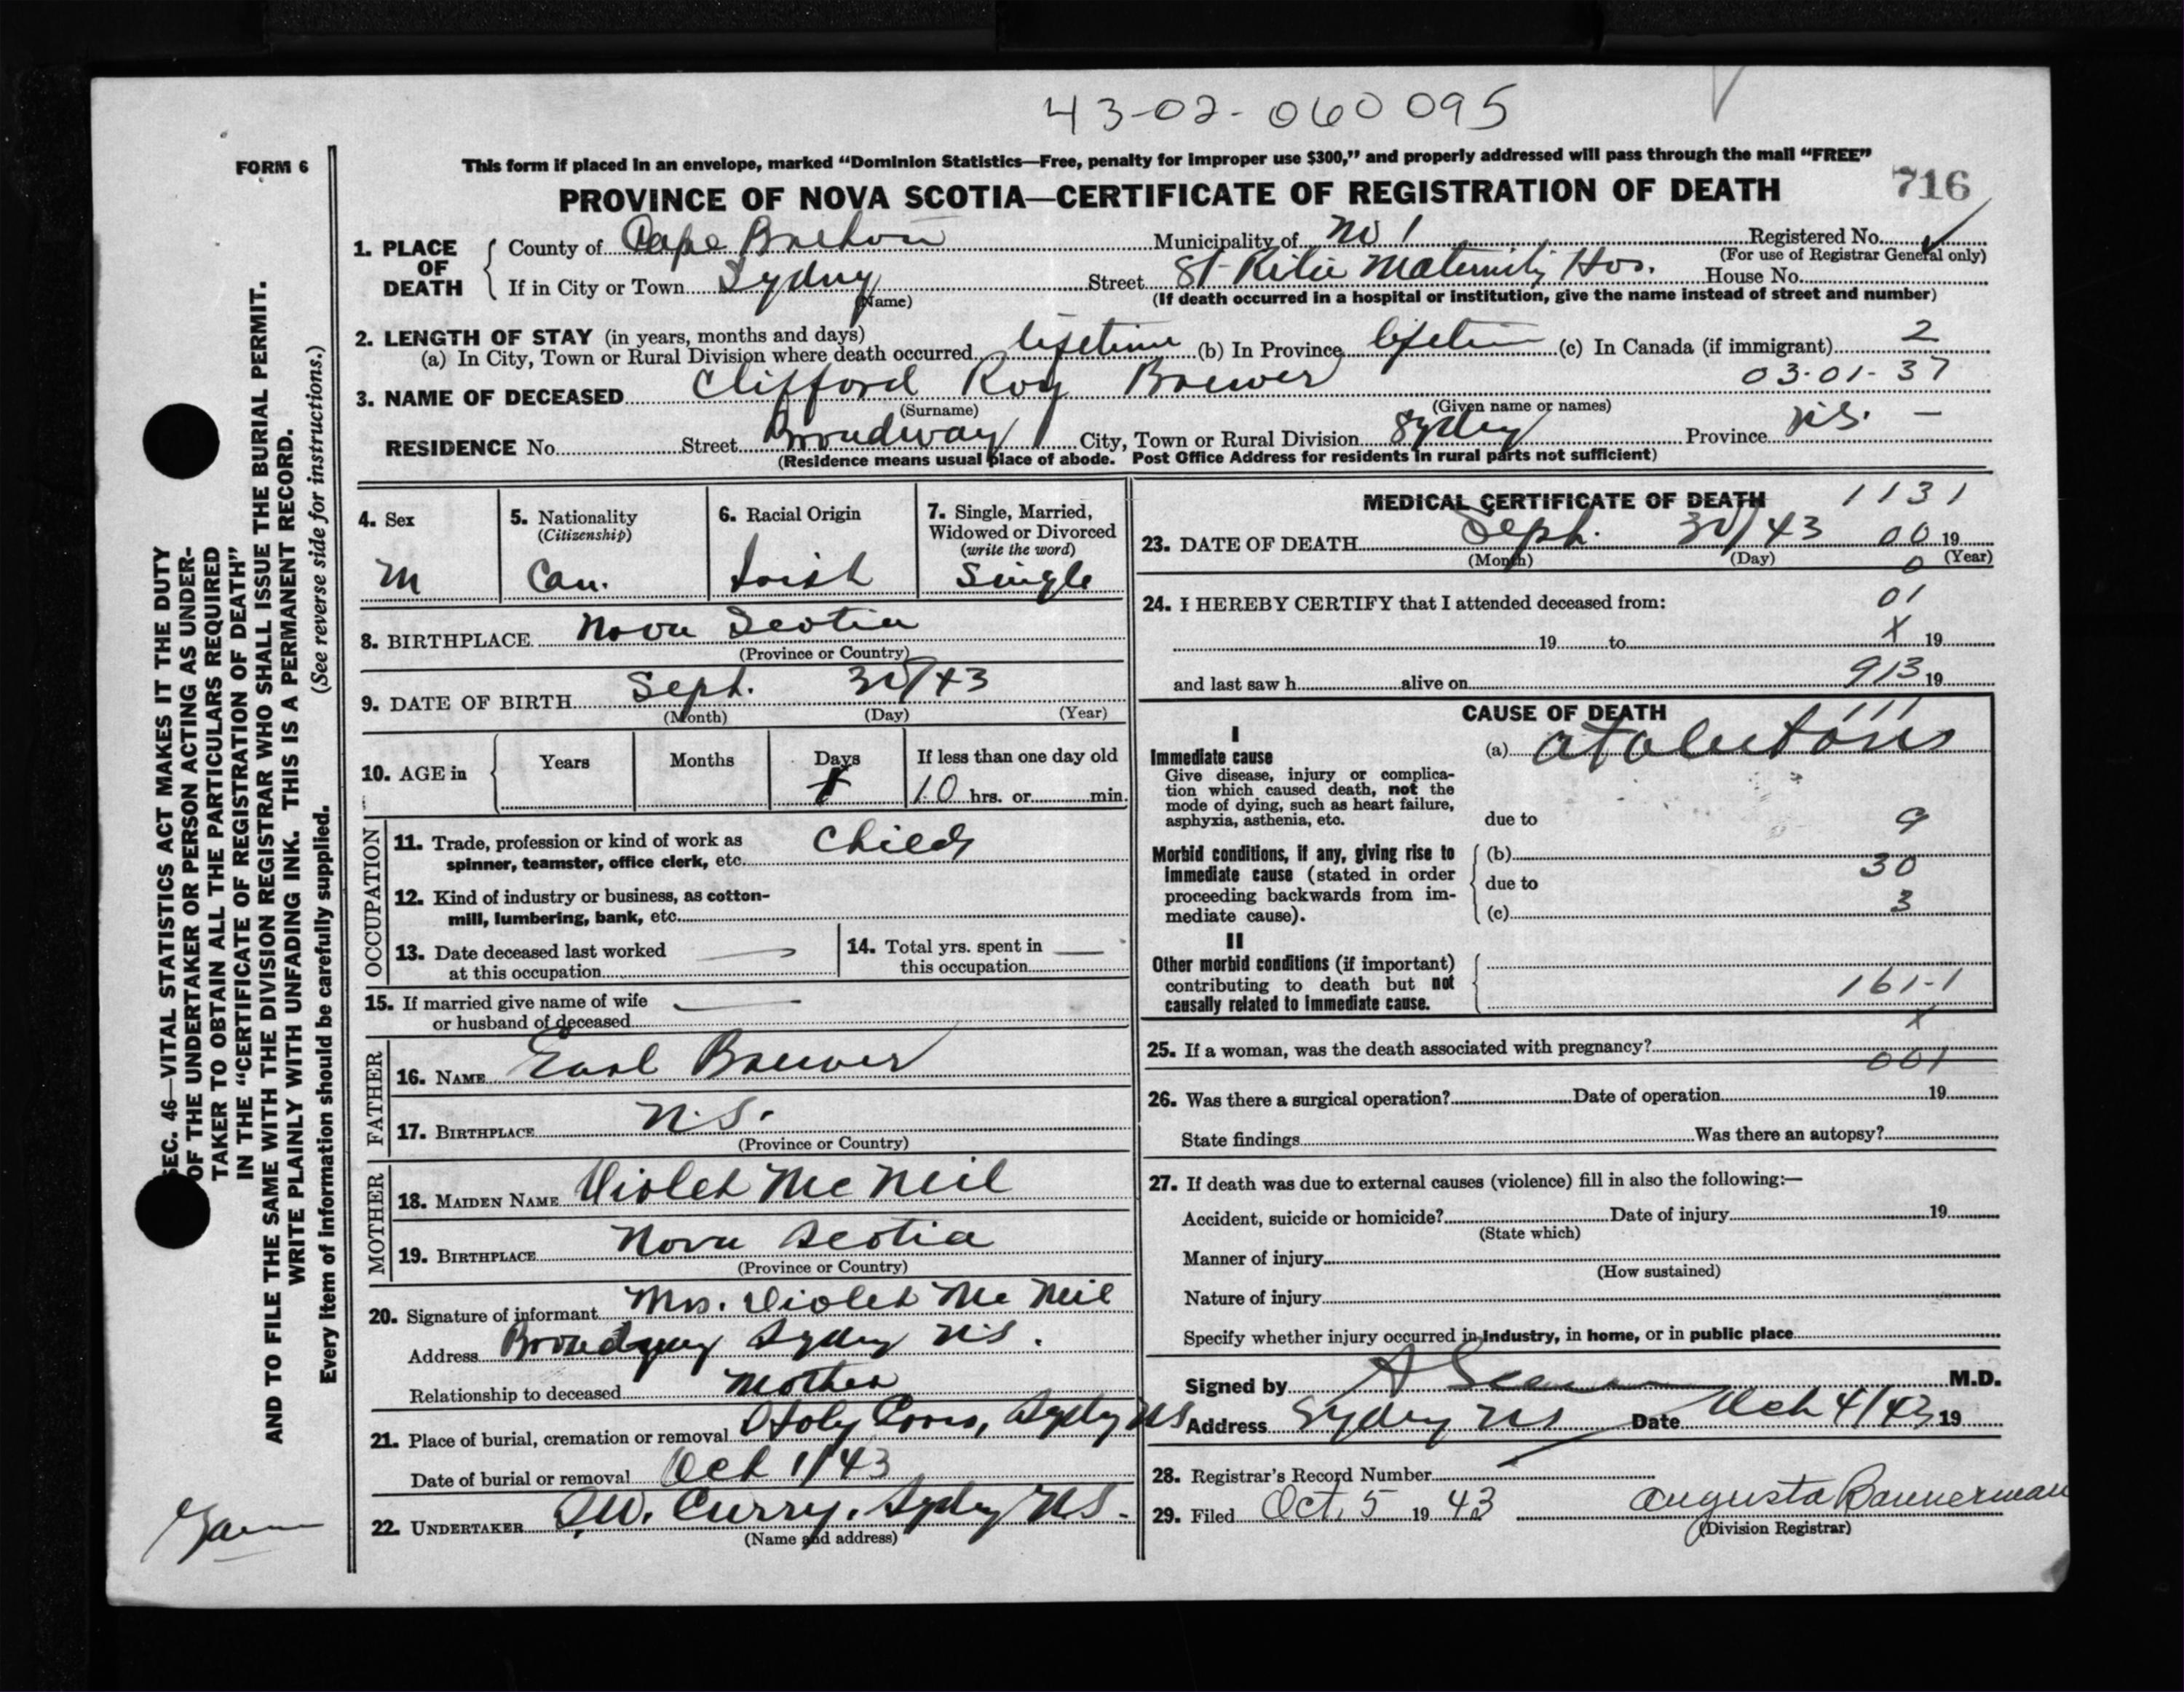 43-02-060095
FORM 6
This form if placed in an envelope, marked "Dominion Statistics—Free, penalty for improper use $300," and properly addressed will pass through the mail "FREE"
PROVINCE OF NOVA SCOTIA—CERTIFICATE OF REGISTRATION OF DEATH 716
1. PLACE OF DEATH
County of Cape Breton Municipality of No 1 Registered No.
(For use of Registrar General only)
If in City or Town Sydney Street St Rita Maternity Hos. House No.
(Name) (If death occurred in a hospital or institution, give the name instead of street and number)
2. LENGTH OF STAY (in years, months and days)
(a) In City, Town or Rural Division where death occurred lifetime (b) In Province lifetime (c) In Canada (if immigrant) 2
3. NAME OF DECEASED Clifford Roy Brewer 03-01-37
(Surname) (Given name or names)
RESIDENCE No. Street Broadway City, Town or Rural Division Sydney Province N.S. —
(Residence means usual place of abode. Post Office Address for residents in rural parts not sufficient)
4. Sex
M
5. Nationality
(Citizenship)
Can.
6. Racial Origin
Irish
7. Single, Married,
Widowed or Divorced
(write the word)
Single
8. BIRTHPLACE Nova Scotia
(Province or Country)
9. DATE OF BIRTH Sept. 30/43
(Month) (Day) (Year)
10. AGE in Years Months Days If less than one day old
10 hrs. or min.
OCCUPATION
11. Trade, profession or kind of work as
spinner, teamster, office clerk, etc. Child
12. Kind of industry or business, as cotton-
mill, lumbering, bank, etc.
13. Date deceased last worked
at this occupation —
14. Total yrs. spent in
this occupation —
15. If married give name of wife
or husband of deceased —
FATHER
16. NAME Earl Brewer
17. BIRTHPLACE N.S.
(Province or Country)
MOTHER
18. MAIDEN NAME Violet McNeil
19. BIRTHPLACE Nova Scotia
(Province or Country)
20. Signature of informant Mrs. Violet McNeil
Address Broadway Sydney N.S.
Relationship to deceased Mother
21. Place of burial, cremation or removal Holy Cross, Sydney NS
Date of burial or removal Oct 1/43
22. UNDERTAKER Curry, Sydney N.S.
(Name and address)
MEDICAL CERTIFICATE OF DEATH 1131
23. DATE OF DEATH Sept. 30/43 00 19
(Month) (Day) 0 (Year)
24. I HEREBY CERTIFY that I attended deceased from: 01
19 to X 19
and last saw h alive on 913 19
CAUSE OF DEATH 111
I
Immediate cause
Give disease, injury or complica-
tion which caused death, not the
mode of dying, such as heart failure,
asphyxia, asthenia, etc.
(a)
due to 9
Morbid conditions, if any, giving rise to
immediate cause (stated in order
proceeding backwards from im-
mediate cause).
(b) 30
due to
(c) 3
II
Other morbid conditions (if important)
contributing to death but not
causally related to immediate cause.
161-1
X
25. If a woman, was the death associated with pregnancy?
001
26. Was there a surgical operation? Date of operation 19
State findings Was there an autopsy?
27. If death was due to external causes (violence) fill in also the following:—
Accident, suicide or homicide? Date of injury 19
(State which)
Manner of injury
(How sustained)
Nature of injury
Specify whether injury occurred in industry, in home, or in public place
Signed by M.D.
Address Sydney NS Date Oct 4/43 19
28. Registrar's Record Number
29. Filed Oct. 5 1943 Augusta Bannerman
(Division Registrar)
SEC. 46—VITAL STATISTICS ACT MAKES IT THE DUTY
OF THE UNDERTAKER OR PERSON ACTING AS UNDER-
TAKER TO OBTAIN ALL THE PARTICULARS REQUIRED
IN THE "CERTIFICATE OF REGISTRATION OF DEATH"
AND TO FILE THE SAME WITH THE DIVISION REGISTRAR WHO SHALL ISSUE THE BURIAL PERMIT.
WRITE PLAINLY WITH UNFADING INK. THIS IS A PERMANENT RECORD.
(See reverse side for instructions.)
Every item of information should be carefully supplied.